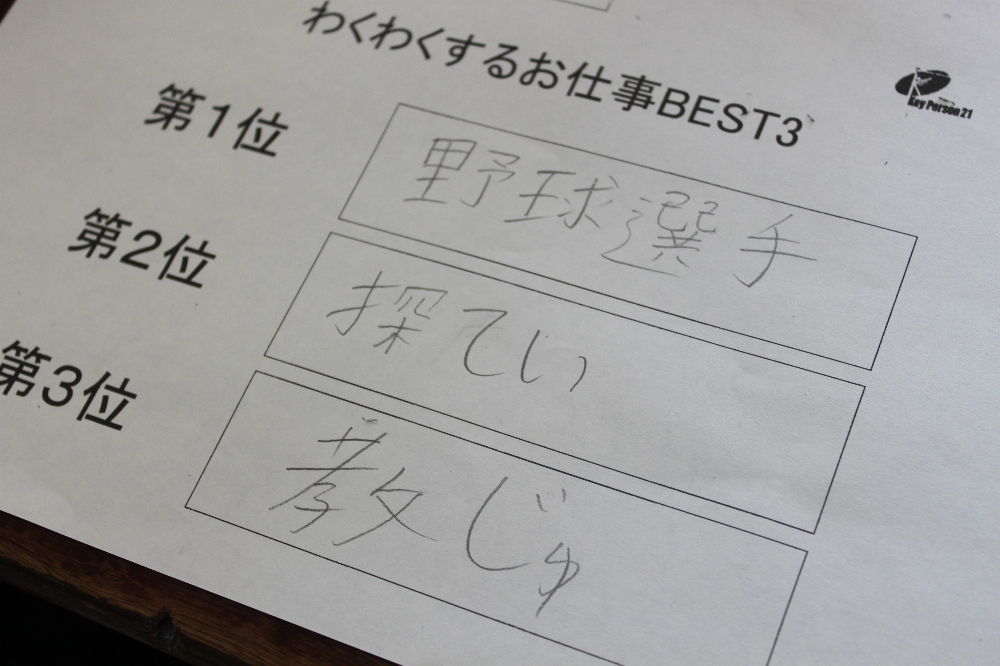 わくわくするお仕事BEST3
Key Person21
第1位
野球選手
第2位
探てい
第3位
教じゅ